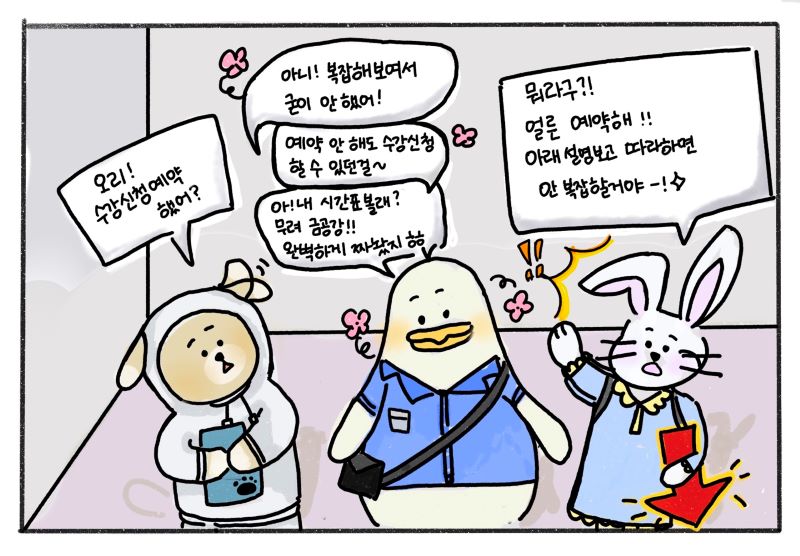 오리!
수강신청예약
했어?
아니! 복잡해보여서
굳이 안 했어!
예약 안 해도 수강신청
할 수 있던걸~
아! 내 시간표볼래?
무려 금공강!!
완벽하게 짜놨지 ㅎㅎ
뭐라구?!
얼른 예약해!!
아래 설명보고 따라하면
안 복잡할거야-!